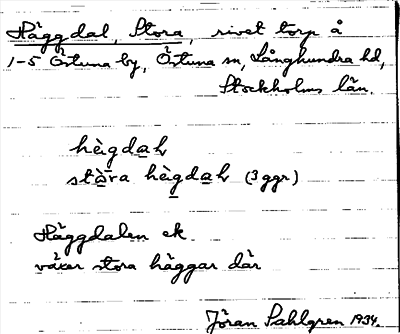 Häggdal, Stora, rivet torp å
1-5 Östuna by, Östuna sn, Långhundra hd,
Stockholms län.
hè̀gdaḷ
stà̄ra hè̀gdaḷ (3 ggr)
Häggdalen ek.
växer stora häggar där
Jöran Sahlgren 1934.